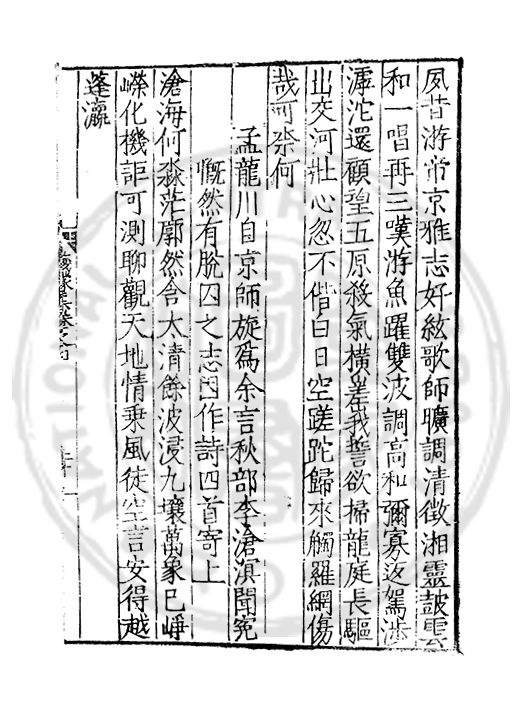 夙昔游帝京雅志好絃歌師曠調清徵湘靈皷雲
和一唱再三嘆游魚躍雙波調高和彌寡返駕渉
滹沱還顧望五原殺氣橫嵳我誓欲掃龍庭長驅
出交河壯心忽不偕白日空蹉跎歸來觸羅網傷
哉可柰何
孟龍川自京師旋爲余言秋部李滄溟聞寃
慨然有脫囚之志因作詩四首寄上
滄海何淼茫廓然含太清餘波浸九壤萬象已崢
嶸化機詎可測聊觀天地情乗風徒空言安得越
蓬瀛